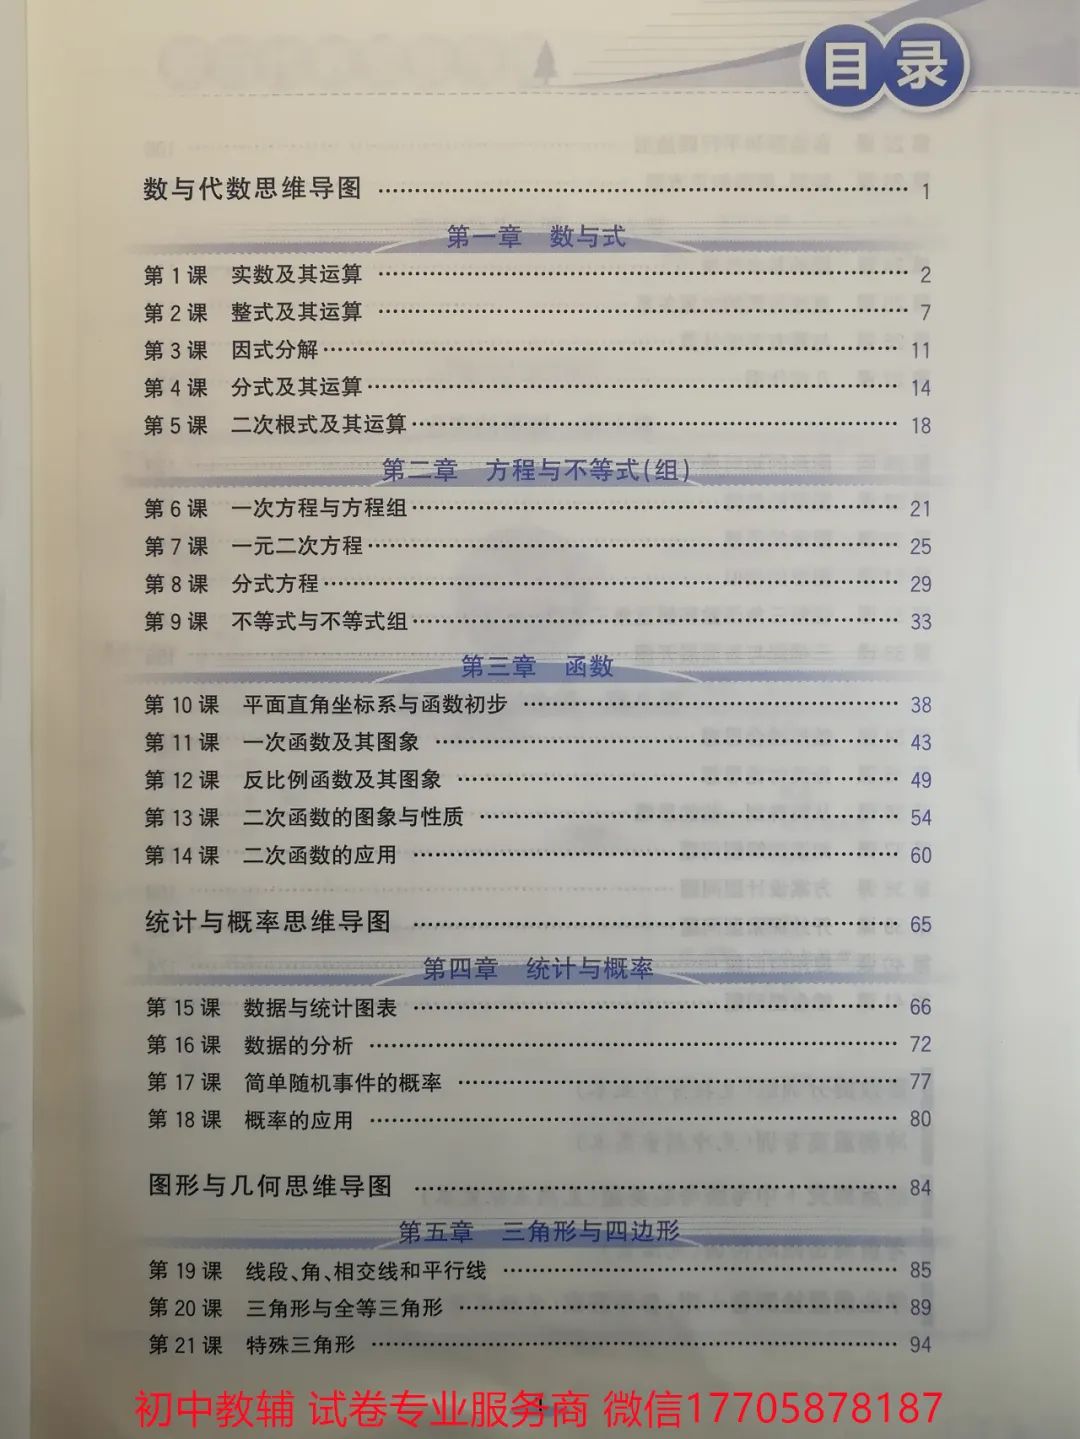 目录
数与代数思维导图 …… 1
第一章 数与式
第1课 实数及其运算 …… 2
第2课 整式及其运算 …… 7
第3课 因式分解 …… 11
第4课 分式及其运算 …… 14
第5课 二次根式及其运算 …… 18
第二章 方程与不等式(组)
第6课 一次方程与方程组 …… 21
第7课 一元二次方程 …… 25
第8课 分式方程 …… 29
第9课 不等式与不等式组 …… 33
第三章 函数
第10课 平面直角坐标系与函数初步 …… 38
第11课 一次函数及其图象 …… 43
第12课 反比例函数及其图象 …… 49
第13课 二次函数的图象与性质 …… 54
第14课 二次函数的应用 …… 60
统计与概率思维导图 …… 65
第四章 统计与概率
第15课 数据与统计图表 …… 66
第16课 数据的分析 …… 72
第17课 简单随机事件的概率 …… 77
第18课 概率的应用 …… 80
图形与几何思维导图 …… 84
第五章 三角形与四边形
第19课 线段、角、相交线和平行线 …… 85
第20课 三角形与全等三角形 …… 89
第21课 特殊三角形 …… 94
初中教辅 试卷专业服务商 微信17705878187